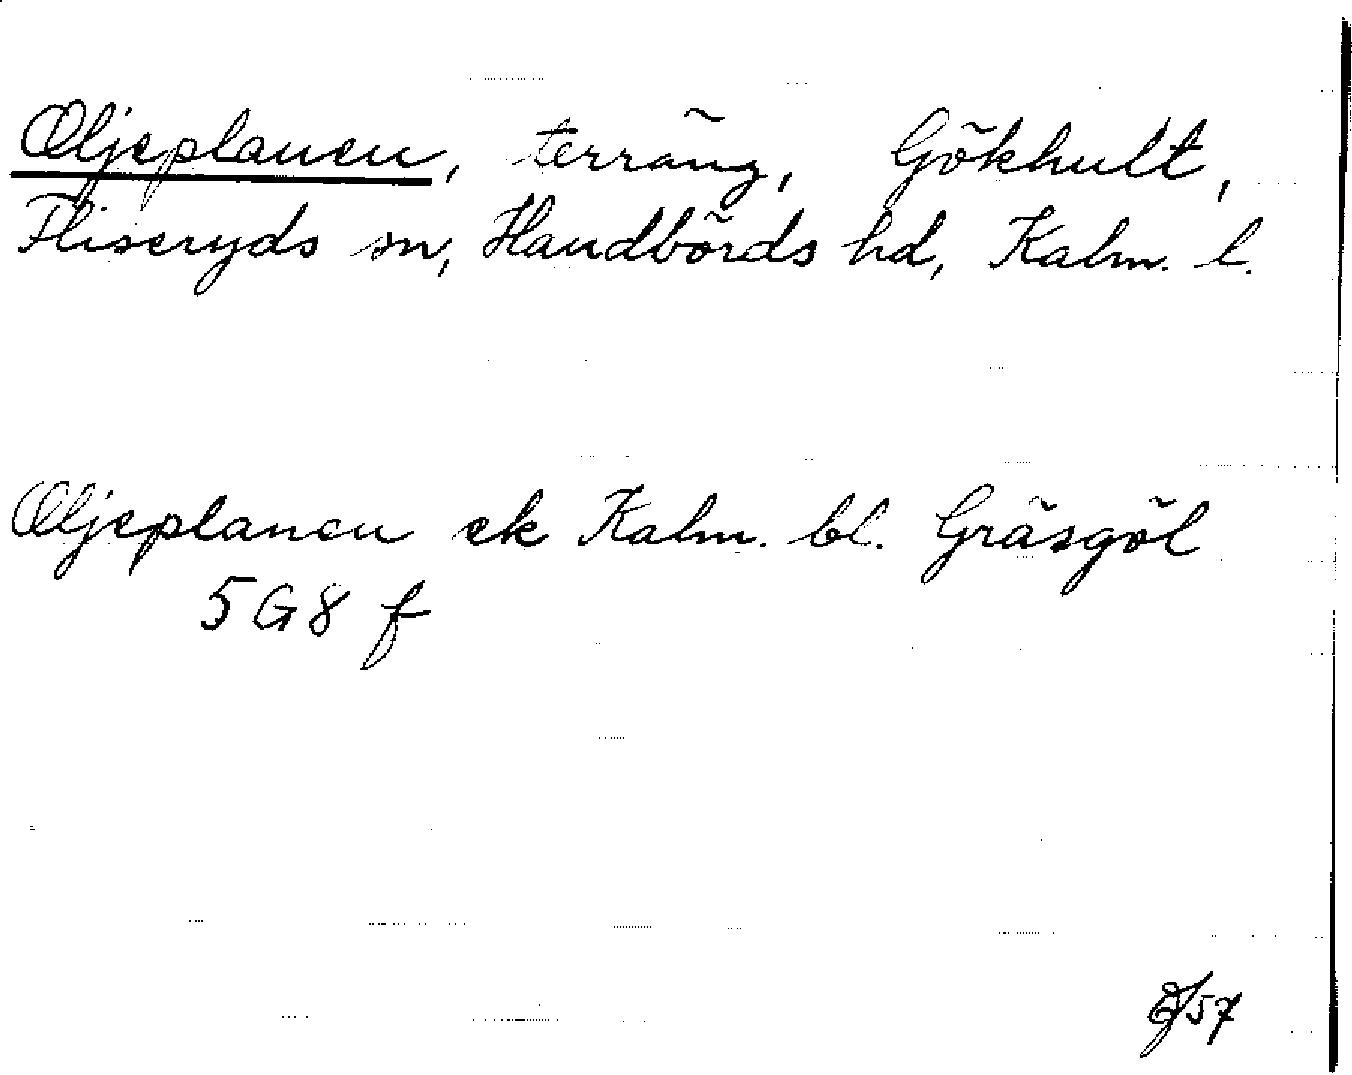 Oljeplanen, terräng, Gökhult,
Fliseryds sn, Handbörds hd, Kalm. l.
Oljeplanen ek Kalm. bl. Gräsgöl
5G8 f
57